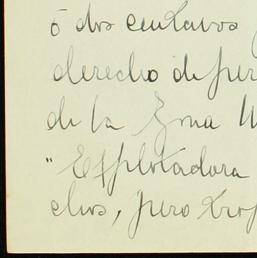 ó dos centavos
derecho de per
de la Zona U
"Explotadora
clios, pero trop